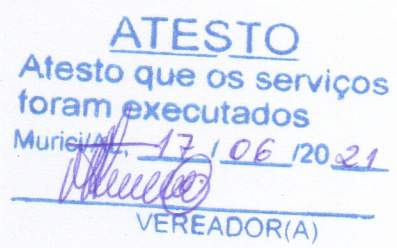 ATESTO
Atesto que os serviços
foram executados
Murici/AL, 17 / 06 /2021
VEREADOR(A)